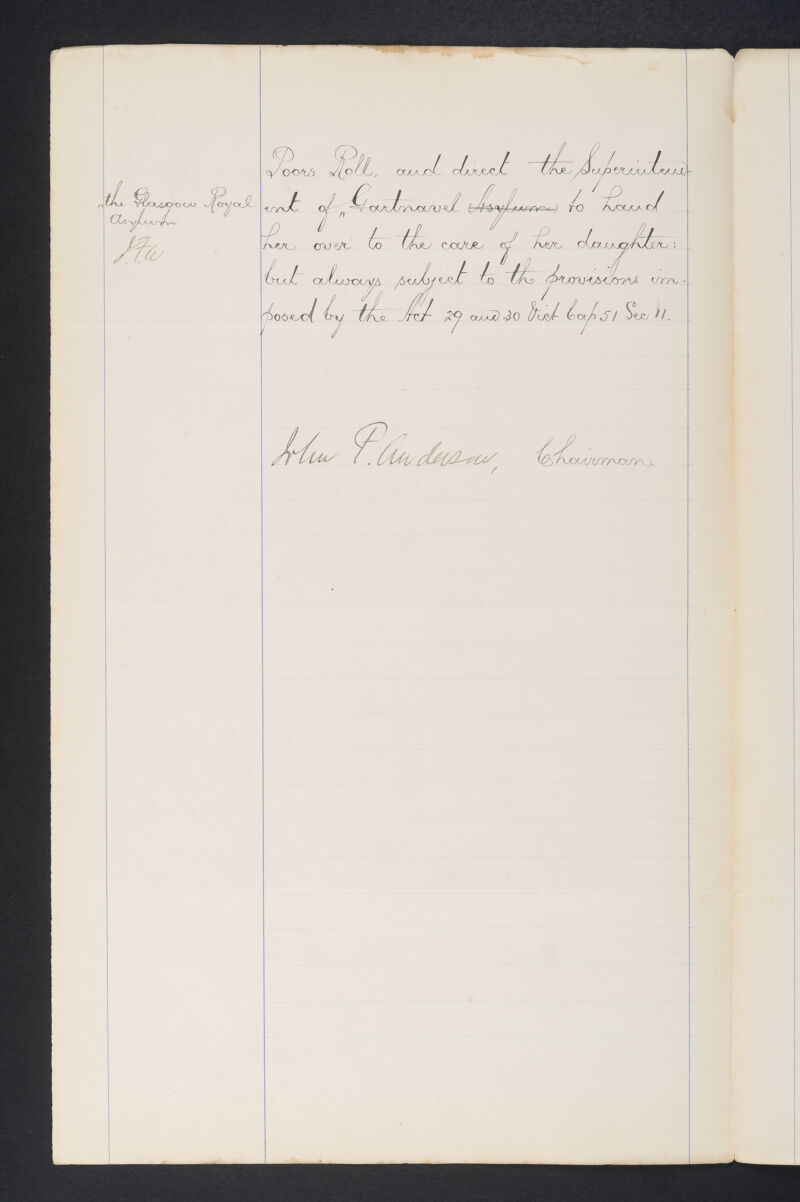 Poors Roll, and direct the Superintend-
„the Glasgow Royal
Asylum
J.F.A
ent of „Gartnavel Asylum to hand
her over to the care of her daughter:
but always subject to the provisions im-
posed by the Act 29 and 30 Vict Cap 51 Sec 11.
John F. Anderson, Chairman.